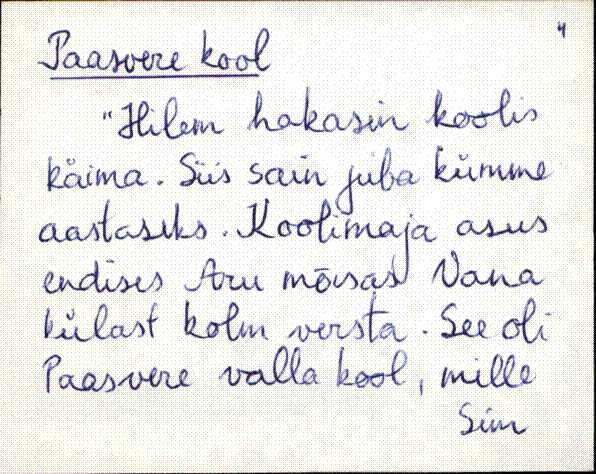 4
Paasvere kool
"Hilem hakasin koolis
käima. Siis sain juba kümme
aastaseks. Koolimaja asus
endises Aru mõisas Vana
külast kolm versta. See oli
Paasvere valla kool, mille
Sim